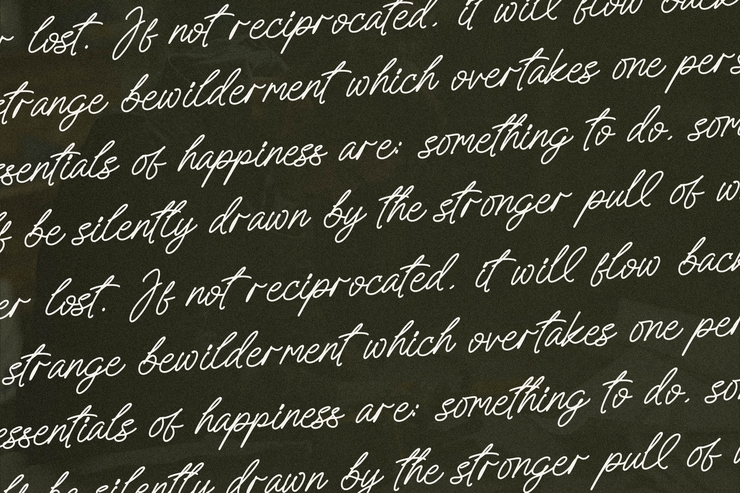 r lost. If not reciprocated, it will flow back
strange bewilderment which overtakes one pers
ssentials of happiness are: something to do, som
lf be silently drawn by the stronger pull of w
er lost. If not reciprocated, it will flow back
strange bewilderment which overtakes one per
essentials of happiness are: something to do, so
lf be silently drawn by the stronger pull of w